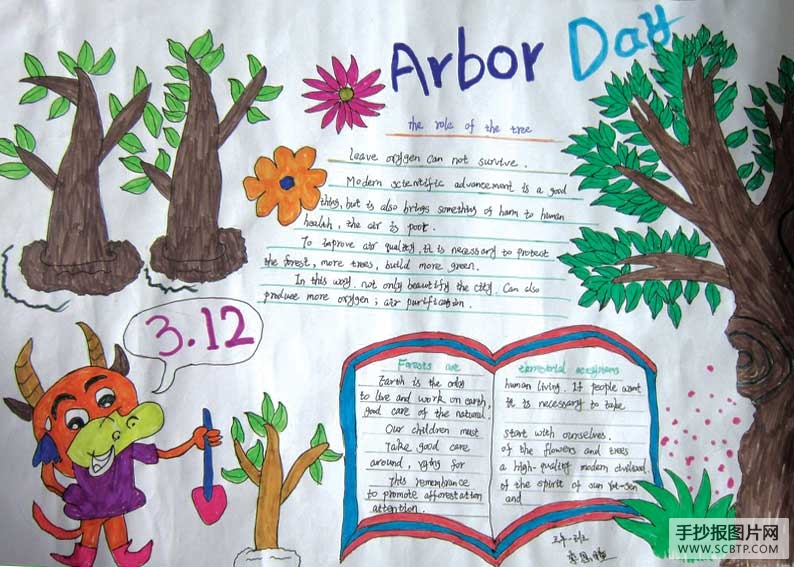 Arbor Day
The role of the tree
leave oxygen can not survive.
Modern scientific advancement is a good
thing, but is also brings something of harm to human
health, the air is poor.
To improve air quality, it is necessary to protect
the forest, more trees, build more green.
In this way, not only beautify the city. Can also
produce more oxygen; air purification.
3.12
Forests are
Earth is the only
to live and work on earth,
good care of the natural.
Our children must
Take good care
around, for
This remembrance
to promote afforestation
attention.
territorial
human living. If people want
It is necessary to take
start with ourselves.
of the flowers and trees
a high-quality modern
of the spirit of sun Yat-Sen
and
手抄报图片网
WWW.SCBTP.COM